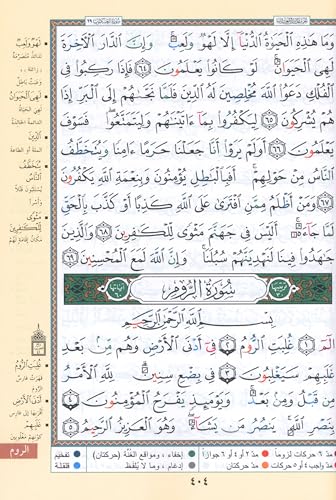 سورة العنكبوت ٢٩
وَمَا هَٰذِهِ الْحَيَوٰةُ الدُّنْيَآ إِلَّا لَهْوٌ وَلَعِبٌ ۚ وَإِنَّ الدَّارَ الْآخِرَةَ
لَهِيَ الْحَيَوَانُ ۚ لَوْ كَانُوا۟ يَعْلَمُونَ ٦٤ فَإِذَا رَكِبُوا۟ فِي
الْفُلْكِ دَعَوُا۟ اللَّهَ مُخْلِصِينَ لَهُ الدِّينَ فَلَمَّا نَجَّىٰهُمْ إِلَى الْبَرِّ إِذَا
هُمْ يُشْرِكُونَ ٦٥ لِيَكْفُرُوا۟ بِمَآ ءَاتَيْنَٰهُمْ وَلِيَتَمَتَّعُوا۟ ۖ فَسَوْفَ
يَعْلَمُونَ ٦٦ أَوَلَمْ يَرَوْا۟ أَنَّا جَعَلْنَا حَرَمًا ءَامِنًا وَيُتَخَطَّفُ
النَّاسُ مِنْ حَوْلِهِمْ ۚ أَفَبِالْبَٰطِلِ يُؤْمِنُونَ وَبِنِعْمَةِ اللَّهِ يَكْفُرُونَ
٦٧ وَمَنْ أَظْلَمُ مِمَّنِ افْتَرَىٰ عَلَى اللَّهِ كَذِبًا أَوْ كَذَّبَ بِالْحَقِّ
لَمَّا جَآءَهُۥٓ ۚ أَلَيْسَ فِي جَهَنَّمَ مَثْوًى لِلْكَٰفِرِينَ ٦٨ وَالَّذِينَ
جَٰهَدُوا۟ فِينَا لَنَهْدِيَنَّهُمْ سُبُلَنَا ۚ وَإِنَّ اللَّهَ لَمَعَ الْمُحْسِنِينَ ٦٩
سُورَةُ الرُّومِ
بِسْمِ اللَّهِ الرَّحْمَٰنِ الرَّحِيمِ
الٓمٓ ١ غُلِبَتِ الرُّومُ ٢ فِيٓ أَدْنَى الْأَرْضِ وَهُمْ مِنْ بَعْدِ
غَلَبِهِمْ سَيَغْلِبُونَ ٣ فِي بِضْعِ سِنِينَ ۗ لِلَّهِ الْأَمْرُ
مِنْ قَبْلُ وَمِنْ بَعْدُ ۚ وَيَوْمَئِذٍ يَفْرَحُ الْمُؤْمِنُونَ ٤
بِنَصْرِ اللَّهِ ۚ يَنْصُرُ مَنْ يَشَآءُ ۖ وَهُوَ الْعَزِيزُ الرَّحِيمُ ٥
لَهْوٌ وَلَعِبٌ
لَهِيَ الْحَيَوَانُ
الدِّينَ
يُتَخَطَّفُ
النَّاسُ
مَثْوًى
لِلْكَٰفِرِينَ
غُلِبَتِ الرُّومُ
أَدْنَى الْأَرْضِ
غَلَبِهِمْ
الروم
مدّ ٦ حركات لزوماً مدّ ٢ أو ٤ أو ٦ جوازاً إخفاء، ومواقع الغُنَّة (حركتان) تفخيم
مدّ واجب ٤ أو ٥ حركات مدّ حركتان إدغام، وما لا يُلفظ قلقلة
٤٠٤